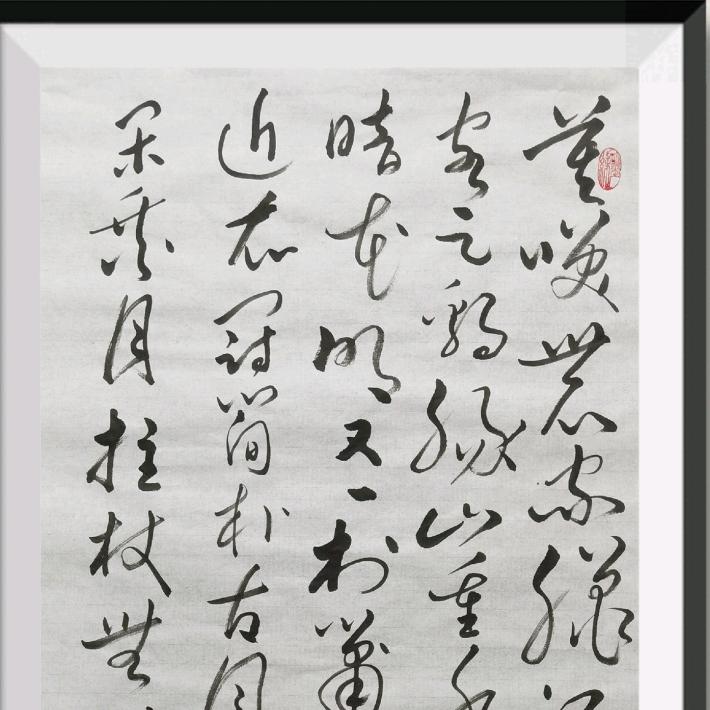 莫笑農家臘
客足鷄豚山重
暗花明又一村簫
近衣冠簡朴古風
閑乘月拄杖無